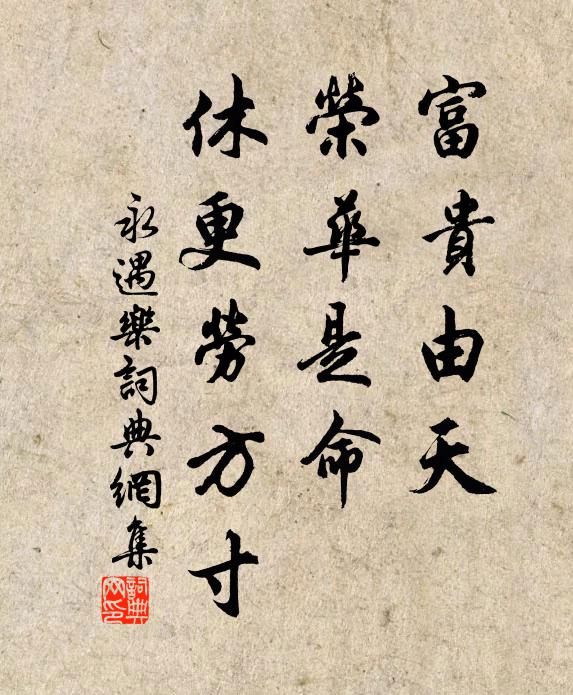 富貴由天
榮華是命
休更勞方寸
永遇樂詞典網集
詞典
网印